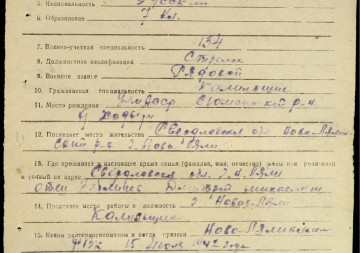 5. Национальность Русский
6. Образование 7 кл.
7. Военно-учетная специальность 134
8. Должностная квалификация Стрелок
9. Военное звание Рядовой
10. Гражданская специальность
11. Место рождения Сюмсинский р-н
12. Последнее место жительства Свердловская обл. Ново-Лялин-
ский р-н г. Ново Ляля
13. Где проживает в настоящее время семья (фамилия, имя, отчество) жены или родителей
Свердловская обл. г. Н. Ляля
отец Дмитрий
14. Последнее место работы и должность г. Новая-Ляля
15. Каким райвоенкоматом и когда призван Ново-Лялинским
РВК 15 1942 года